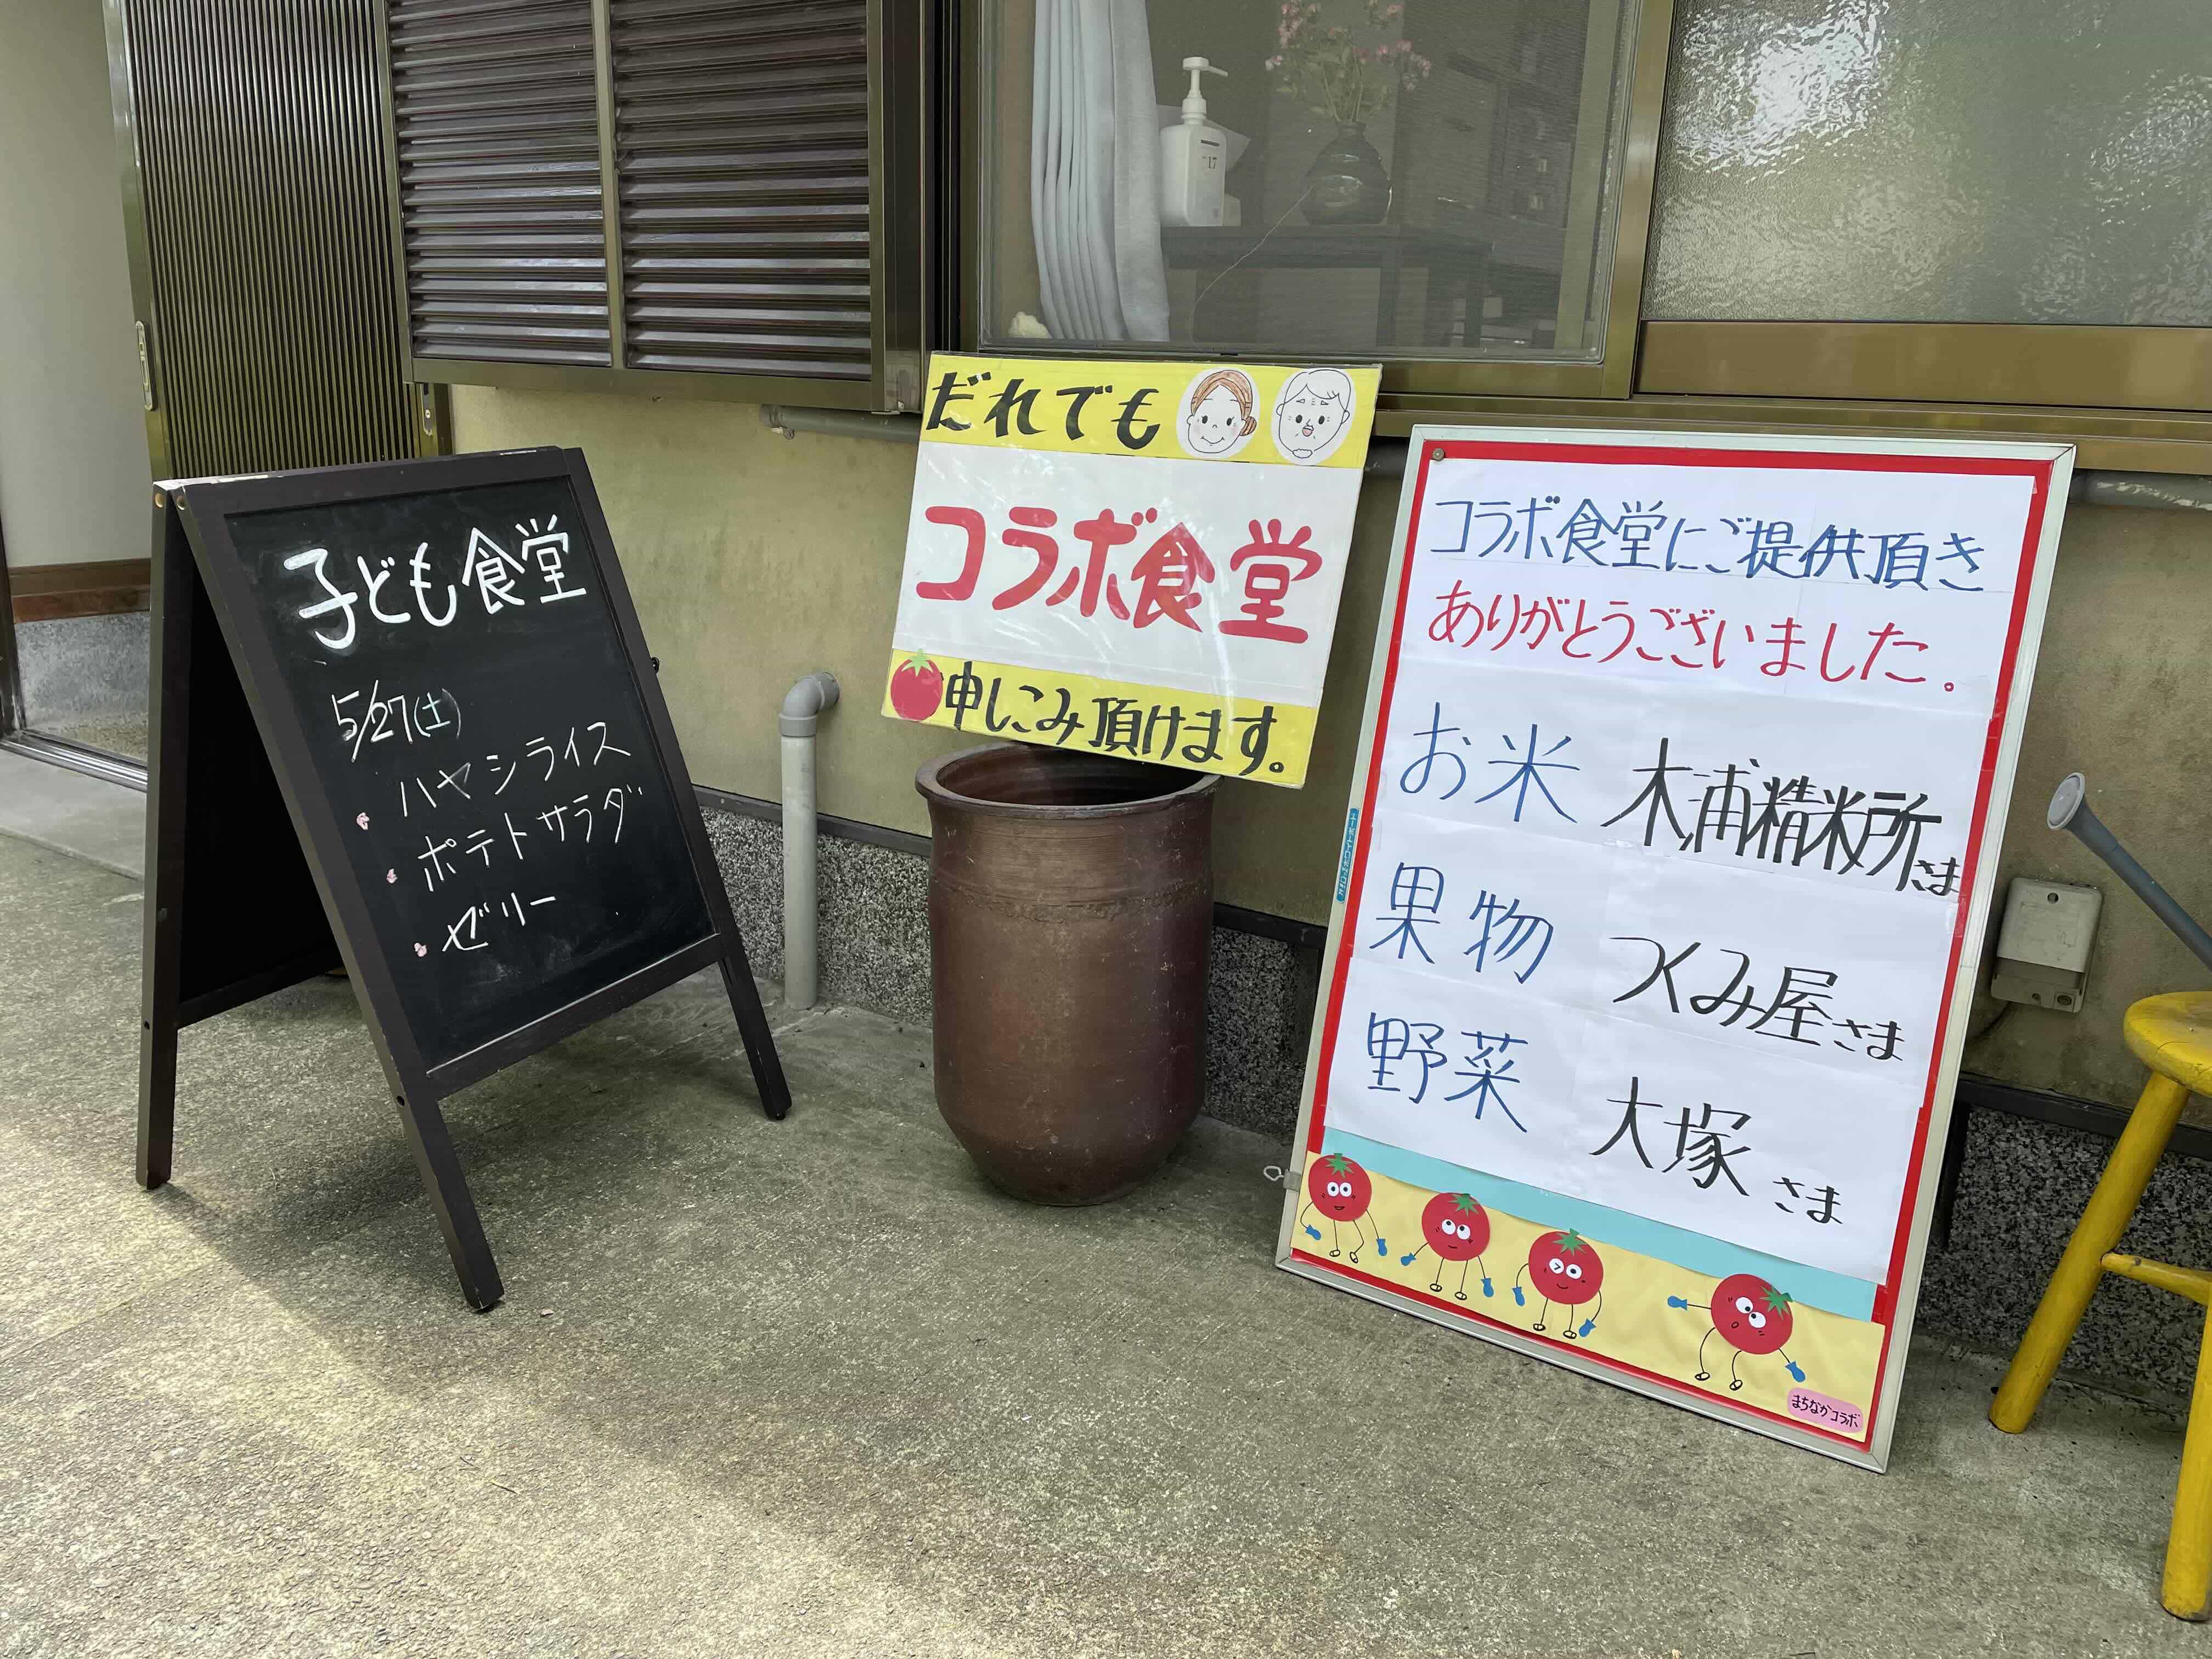 子ども食堂
5/27(土)
・ハヤシライス
・ポテトサラダ
・ゼリー
だれでも
コラボ食堂
申しこみ頂けます。
コラボ食堂にご提供頂き
ありがとうございました。
お米 木浦精米所さま
果物 つくみ屋さま
野菜 大塚さま
まちなかコラボ
17